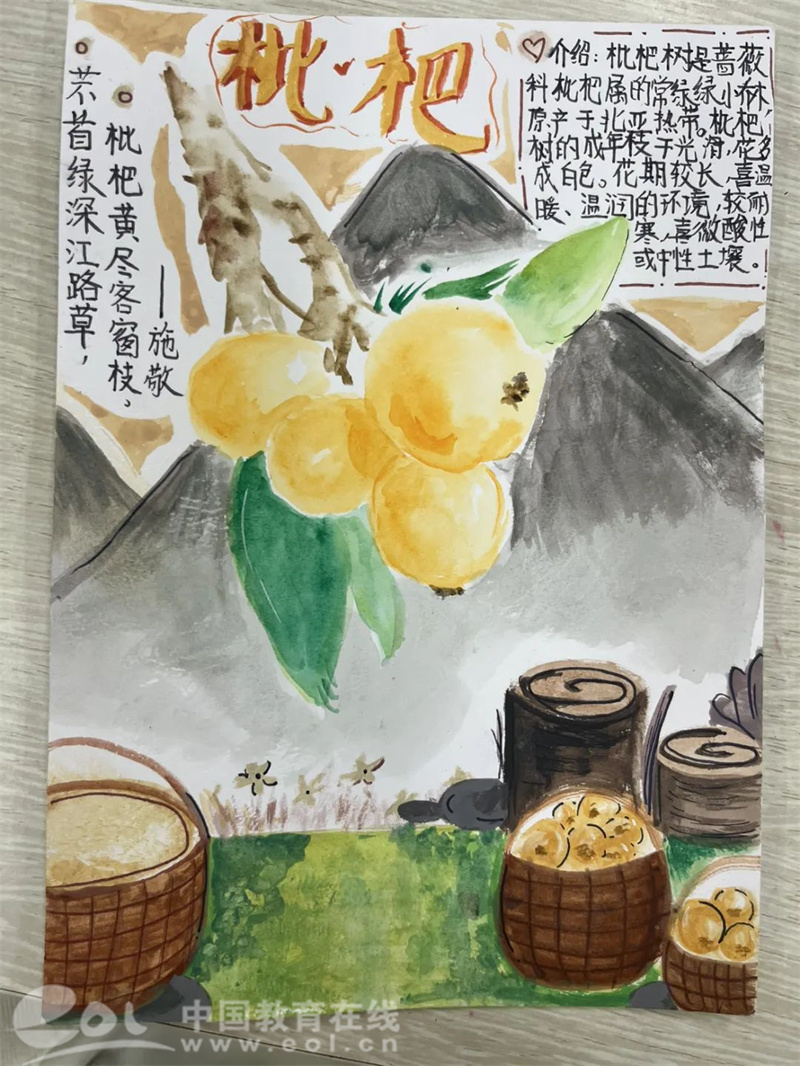 枇杷
介绍：枇杷树是蔷薇
科枇杷属的常绿绿小乔木，
原产于北亚热带。枇杷
树的成年枝干光滑，花多
成白包。花期较长，喜温
暖、温润的环境，较耐
寒，喜微酸性
或中性土壤。
芣苜绿深江路草，
枇杷黄尽客窗枝。
——施敬
eol 中国教育在线
www.eol.cn